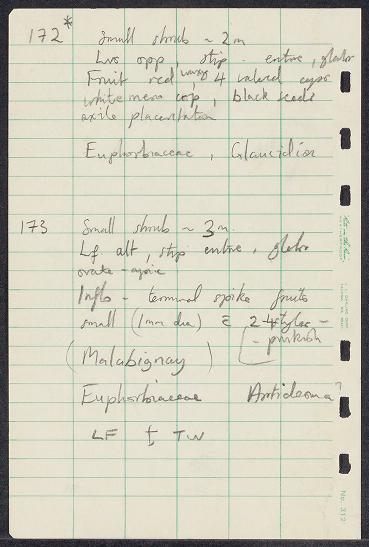 172* Small shrub ~ 2m
Lvs opp, stip - entire, glabr
Fruit red, waxy 4 valved caps
white memb cap, black seeds
axile placentation
Euphorbiaceae, Glaucidion
173 Small shrub ~ 3m.
Lf. alt, stip entire, glabr
ovate-
Inflo - terminal spike fruits
small (1mm dia) c̄ 2-4 styles -
- pinkish
(Malabignay)
Euphorbiaceae Antidesma?
LF TW
No. 312